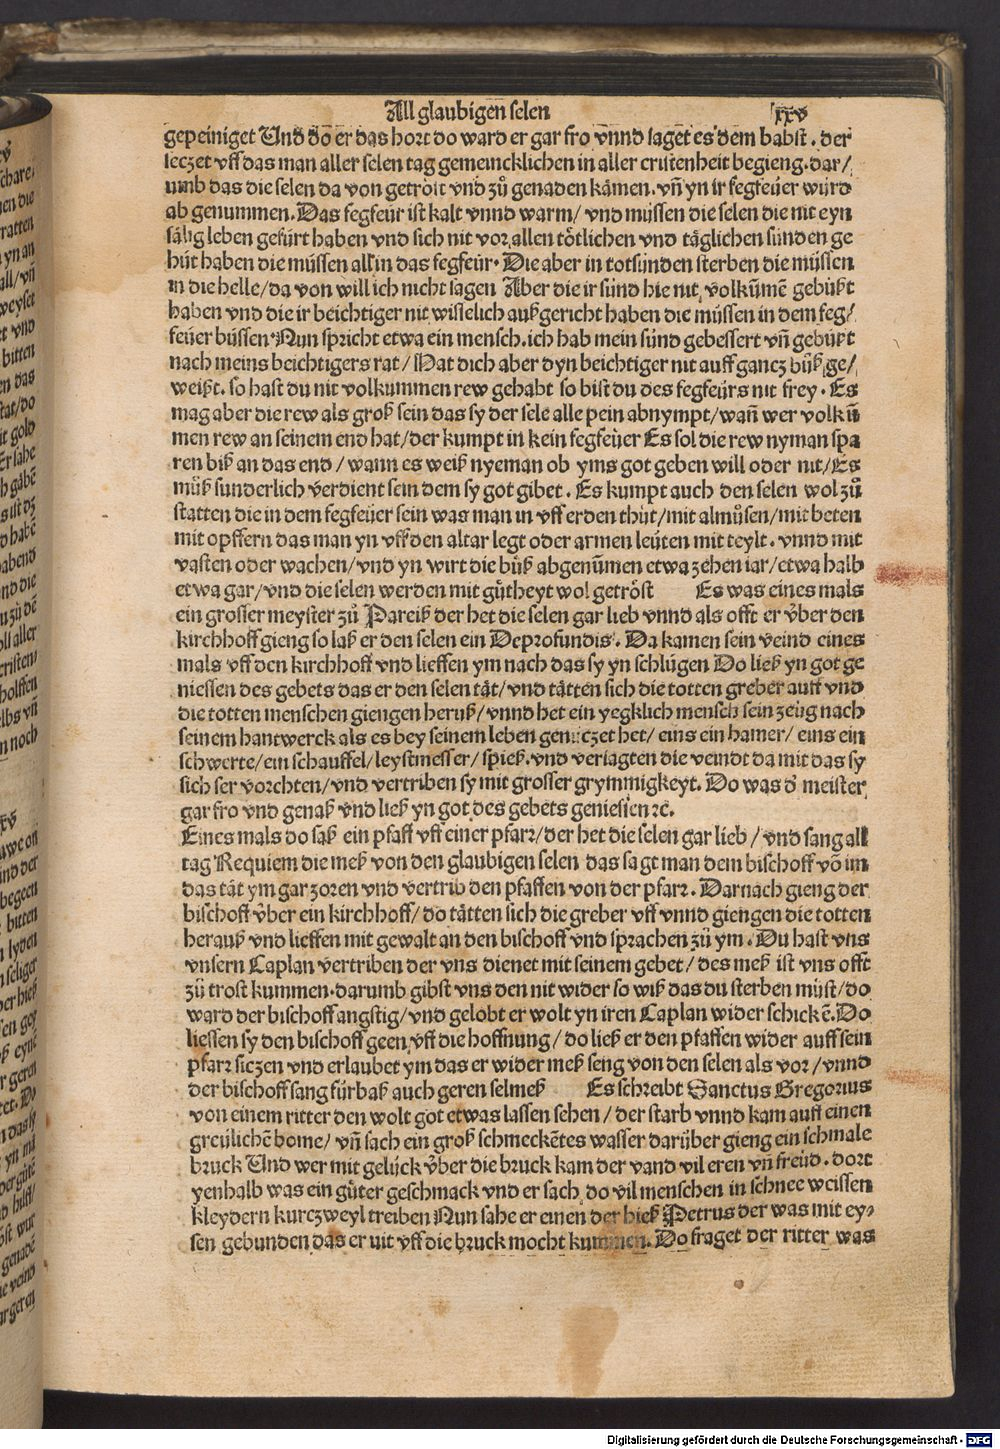 All glaubigen selen xxv
gepeiniget Und do er das hort do ward er gar fro vnnd saget es dem babst. der
leczet vff das man aller selen tag gemeincklichen in aller cristenheit begieng. dar/
umb das die selen da von getröst vnd zů genaden kämen. vñ yn ir fegfeüer würd
ab genummen. Das fegfeür ist kalt vnnd warm/ vnd müssen die selen die nit eyn
sälig leben gefürt haben vnd sich nit vor allen tötlichen vnd täglichen sünden ge
hüt haben die müssen all in das fegfeür. Die aber in totsünden sterben die müssen
in die helle/da von will ich nicht sagen Aber die ir sünd hie nit volkūmē gebüßt
haben vnd die ir beichtiger nit wisselich außgericht haben die müssen in dem feg/
feüer büssen Nun spricht etwa ein mensch. ich hab mein sünd gebessert vñ gebüßt
nach meins beichtigers rat/ Hat dich aber dyn beichtiger nit auff gancz bůß ge/
weißt. so hast du nit volkummen rew gehabt so bist du des fegfeürs nit frey. Es
mag aber die rew als groß sein das sy der sele alle pein abnympt/wañ wer volkū
men rew an seinem end hat/der kumpt in kein fegfeüer Es sol die rew nyman spa
ren biß an das end/wann es weiß nyeman ob yms got geben will oder nit/Es
můß sunderlich verdient sein dem sy got gibet. Es kumpt auch den selen wol zů
statten die in dem fegfeüer sein was man in vff erden thůt/mit almůsen/mit beten
mit opffern das man yn vff den altar legt oder armen leüten mit teylt. vnnd mit
vasten oder wachen/vnd yn wirt die bůß abgenūmen etwa zehen iar/etwa halb
etwa gar/vnd die selen werden mit gůtheyt wol getröst Es was eines mals
ein grosser meyster zů Pareiß der het die selen gar lieb vnnd als offt er über den
kirchhoff gieng so laß er den selen ein Deprofundis. Da kamen sein veind eines
mals vff den kirchhoff vnd lieffen ym nach das sy yn schlügen Do ließ yn got ge
niessen des gebets das er den selen tät/vnd tätten sich die totten greber auff vnd
die totten menschen giengen heruß/vnnd het ein yegklich mensch sein zeüg nach
seinem hantwerck als es bey seinem leben genüczet het/eins ein hamer/ eins ein
schwerte/ein schauffel/leystmesser/spieß. vnd veriagten die veindt da mit das sy
sich ser vorchten/vnd vertriben sy mit grosser grymmigkeyt. Do was d' meister
gar fro vnd genaß vnd ließ yn got des gebets geniessen ꝛc.
Eines mals do saß ein pfaff vff einer pfarr/der het die selen gar lieb/vnd sang all
tag Requiem die meß von den glaubigen selen das sagt man dem bischoff võ im
das tät ym gar zoren vnd vertrib den pfaffen von der pfarr. Darnach gieng der
bischoff über ein kirchhoff/do tätten sich die greber vff vnnd giengen die totten
herauß vnd lieffen mit gewalt an den bischoff vnd sprachen zů ym. Du hast vns
vnsern Caplan vertriben der vns dienet mit seinem gebet/ des meß ist vns offt
zů trost kummen. darumb gibst vns den nit wider so wiß das du sterben müst/do
ward der bischoff angstig/vnd gelobt er wolt yn iren Caplan wider schickē. Do
liessen sy den bischoff geen vff die hoffnung/do ließ er den pfaffen wider auff sein
pfarr siczen vnd erlaubet ym das er wider meß seng von den selen als vor/vnnd
der bischoff sang fürbaß auch geren selmeß Es schreibt Sanctus Gregorius
von einem ritter den wolt got etwas lassen sehen/der starb vnnd kam auff einen
greülichē bome/ vñ sach ein groß schmeckētes wasser darüber gieng ein schmale
bruck Und wer mit gelück über die bruck kam der vand vil eren vñ freüd. dort
yenhalb was ein gůter geschmack vnd er sach do vil menschen in schnee weissen
kleydern kurczweyl treiben Nun sahe er einen der hieß Petrus der was mit ey/
sen gebunden das er nit vff die bruck mocht kummen. Do fraget der ritter was
Digitalisierung gefördert durch die Deutsche Forschungsgemeinschaft - DFG